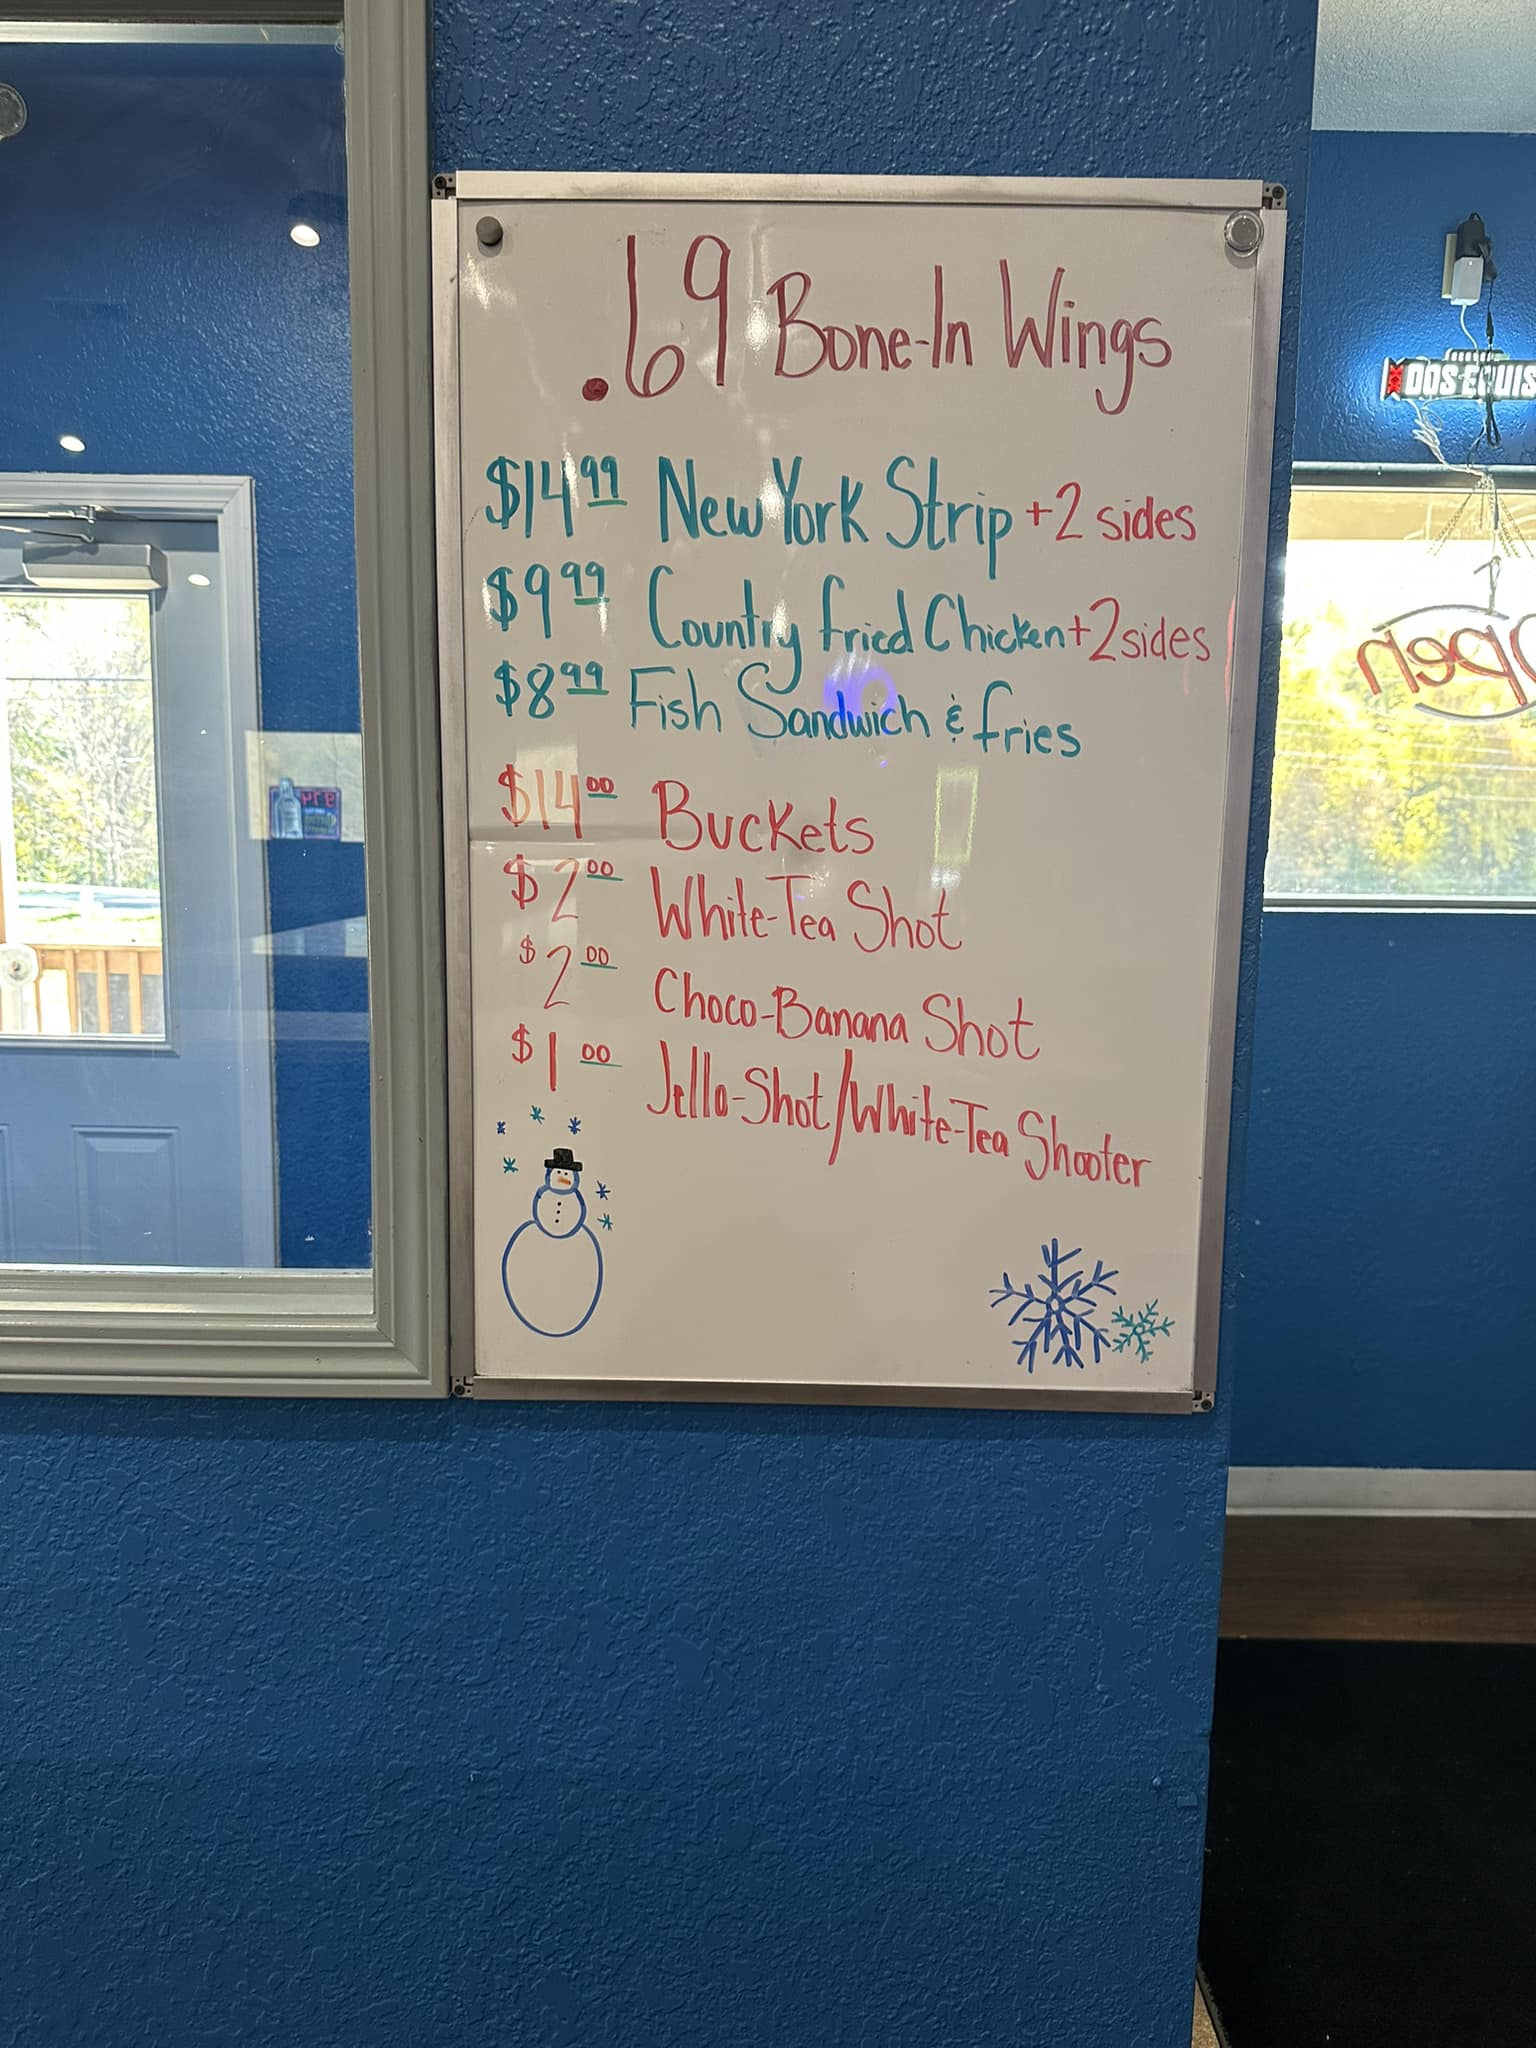 .69 Bone-In Wings
$14.99 New York Strip +2 sides
$9.99 Country Fried Chicken +2 sides
$8.99 Fish Sandwich & fries
$14.00 Buckets
$2.00 White-Tea Shot
$2.00 Choco-Banana Shot
$1.00 Jello-Shot/White-Tea Shooter
DOS EQUIS
Open